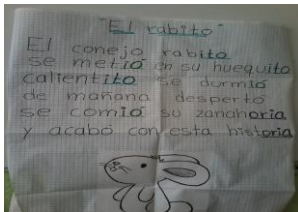 "El rabito"
El conejo rabito
se metió en su huequito
calientito se durmió
de mañana despertó
se comió su zanahoria
y acabó con esta historia